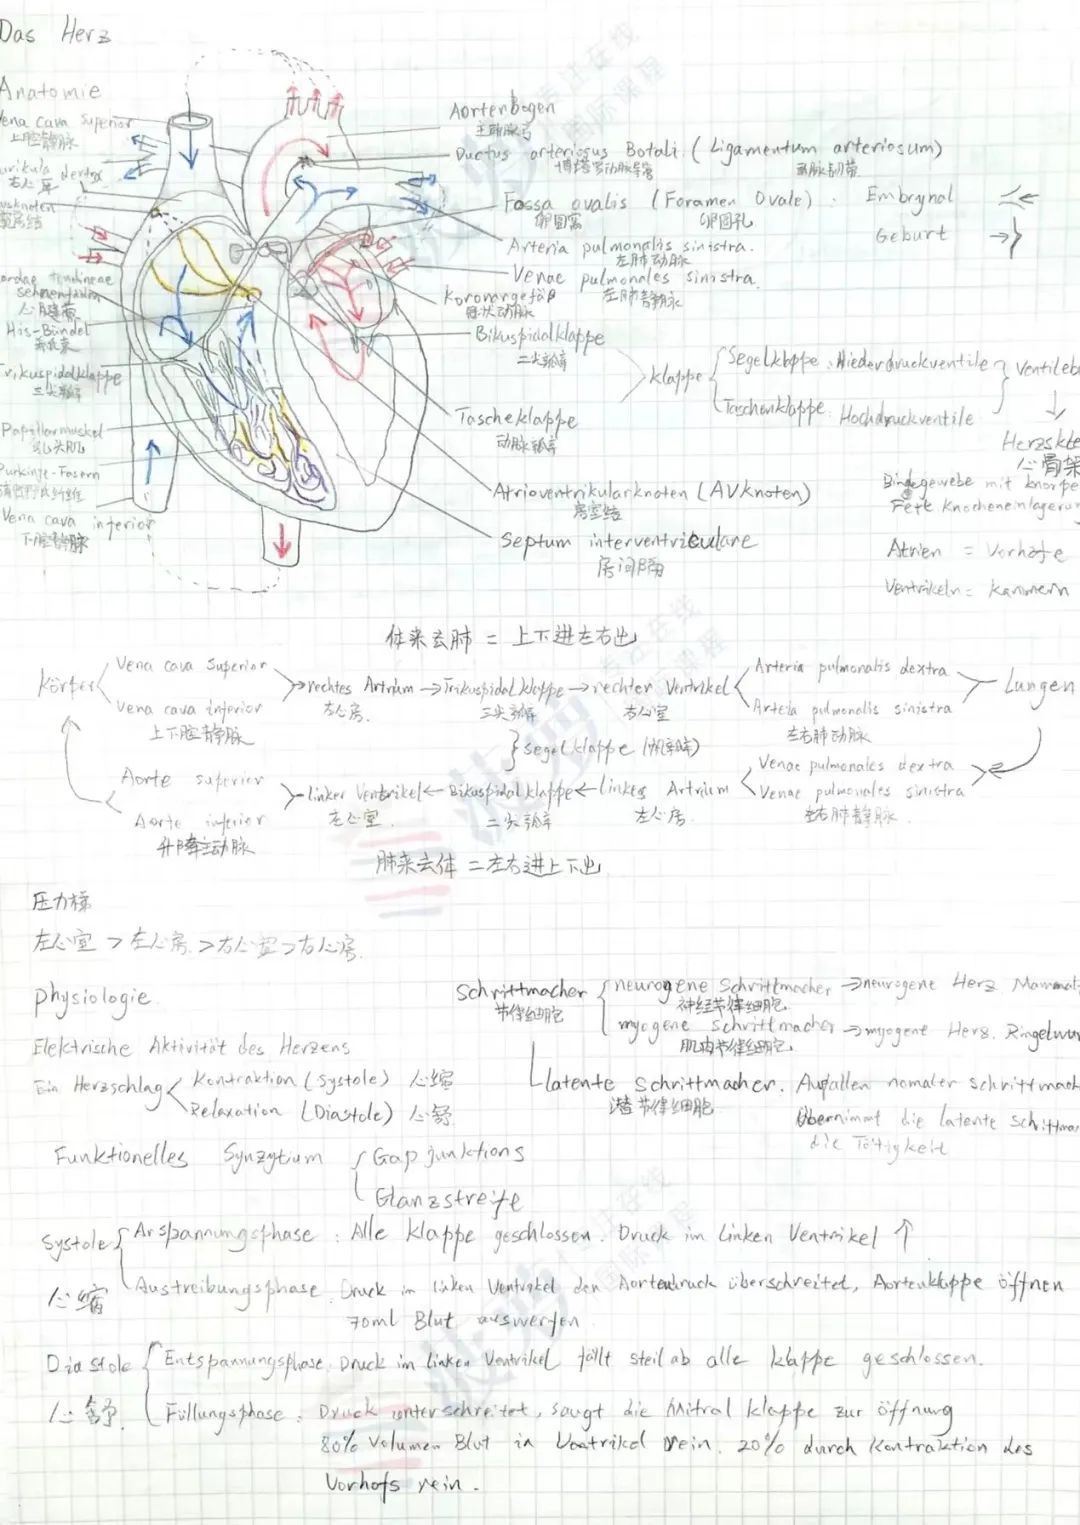 Das Herz
Anatomie
ena cava superior
上腔静脉
aurikula dextra
右心耳
usknoten
窦房结
ordae tendineae
sehnenfäden
心腱索
His-Bündel
希氏束
Trikuspidalklappe
三尖瓣
Papillarmuskel
乳头肌
Purkinje-Fasern
Vena cava inferior
下腔静脉
Aortenbogen
主动脉弓
Ductus arteriosus Botali (Ligamentum arteriosum)
博塔罗动脉导管 动脉韧带
Fossa ovalis (Foramen Ovale). Embrynal
卵圆窝 卵圆孔
Geburt
Arteria pulmonalis sinistra.
左肺动脉
Venae pulmonales sinistra.
左肺静脉
Koronargefäß
冠状动脉
Bikuspidalklappe
二尖瓣
Klappe { Segelklappe : Niederdruckventile } Ventileb
Taschenklappe : Hochdruckventile
Herzske
心骨架
Tascheklappe
动脉瓣
Bindegewebe mit knorpe
Fett Knocheneinlagerun
Atrioventrikularknoten (AVknoten)
房室结
Septum interventriculare
房间隔
Atrien = Vorhöfe
Ventrikeln = Kammern
体来去肺 = 上下进左右出
Körper Vena cava superior → rechtes Artrium → Trikuspidalklappe → rechter Ventrikel Arteria pulmonalis dextra Lungen
Vena cava inferior 右心房. 三尖瓣 右心室 Arteia pulmonalis sinistra
上下腔静脉 左右肺动脉
} Segelklappe (帆状瓣)
Aorte superior linker Ventrikel ← Bikuspidalklappe ← linkes Artrium Venae pulmonales dextra
Aorte inferior 左心室. 二尖瓣 左心房. Venae pulmonales sinistra
升降主动脉 左右肺静脉.
肺来去体 = 左右进上下出
压力梯
左心室 > 左心房 > 右心室 > 右心房.
Physiologie
Schrittmacher { neurogene Schrittmacher → neurogene Herz Mammal
节律细胞 神经节律细胞
myogene Schrittmacher → myogent Herz. Ringelwur
肌肉节律细胞
Elektrische Aktivität des Herzens
Ein Herzschlag Kontraktion (Systole) 心缩
Relaxation (Diastole) 心舒
latente Schrittmacher. Ausfallen nomaler schrittmach
潜节律细胞 übernimmt die latente schrittma
die Tätigkeit
Funktionelles Synzytium { Gap junktions
Glanzstreife
Systole { Anspannungsphase : Alle Klappe geschlossen. Druck im Linken Ventrikel ↑
心缩 Austreibungsphase. Druck im linken Ventrikel den Aortendruck überschreitet, Aortenklappe öffnen
70ml Blut auswerfen.
Diastole { Entspannungsphase. Druck im linken Ventrikel fällt steil ab alle klappe geschlossen.
心舒. Füllungsphase : Druck unterschreitet, saugt die Mitral klappe zur öffnung
80% Volumen Blut in Ventrikel rein. 20% durch Kontraktion des
Vorhofs rein.